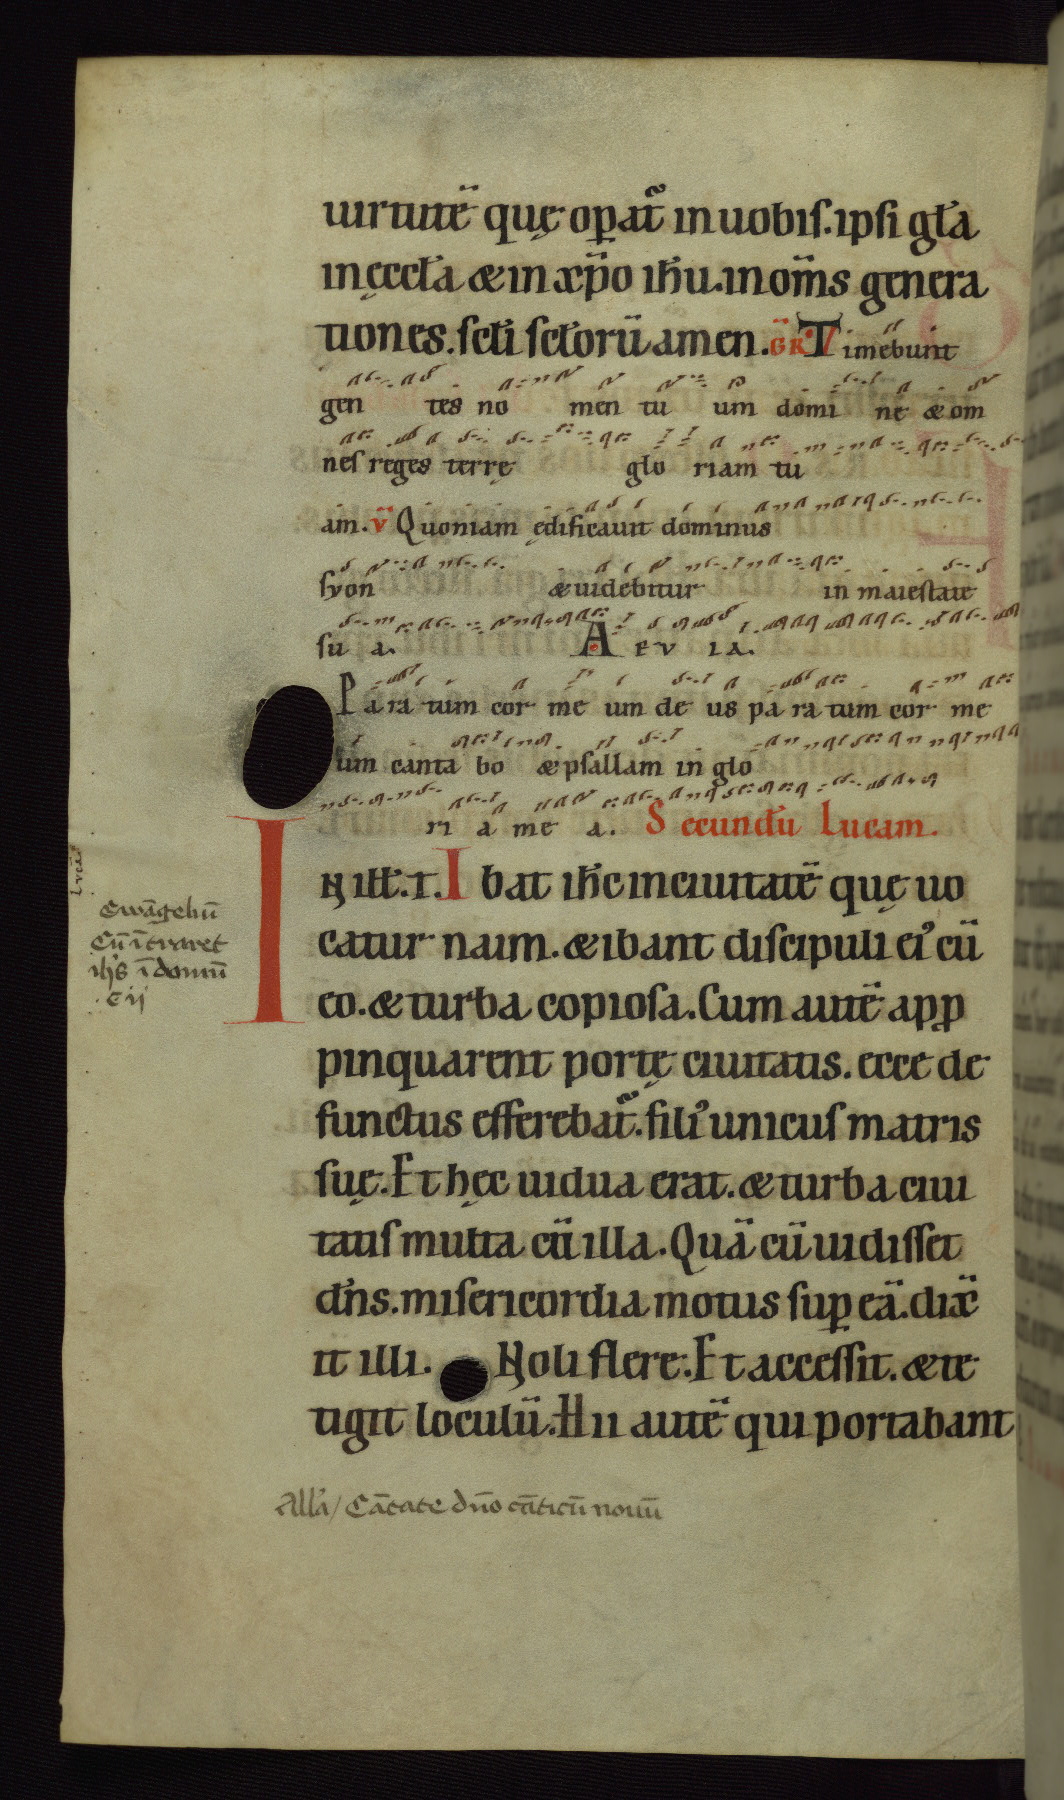 uirtutē quę op̄at᷑ in uobis. ipsi gła
in ęccła & in xp̄o ih̄u. in om̄s genera
tiones. scłi scłorū amen. GR̄. Timebunt
gen tes no men tu um domi ne & om
nes reges terrę glo riam tu
am. V̄ Quoniam ędificauit dominus
syon & uidebitur in maiestate
su a. A E V I A.
Paratum cor me um de us pa ra tum cor me
um canta bo & psallam in glo
ri a me a. Secundū Lucam.
IN ill. t. Ibat ih̄c in ciuitatē quę uo
catur naim. & ibant discipuli ei᾽ cū
eo. & turba copiosa. Cum autē app̄
pinquarent portę ciuitatis. ecce de
functus efferebat᷑. fili᾽ unicus matris
suę. Et hęc uidua erat. & turba ciui
tatis multa cū illa. Quā cū uidisset
dn̄s. misericordia motus sup̄ eā. dix̄
it illi. Noli flere. Et accessit. & te
tigit loculū. Hii autē qui portabant
Lucā
Ewāgeliū
Cū ītraret
ihs̄ ī domū
cij
Alla᾽/ Cātate dn̄o cāticū nouū